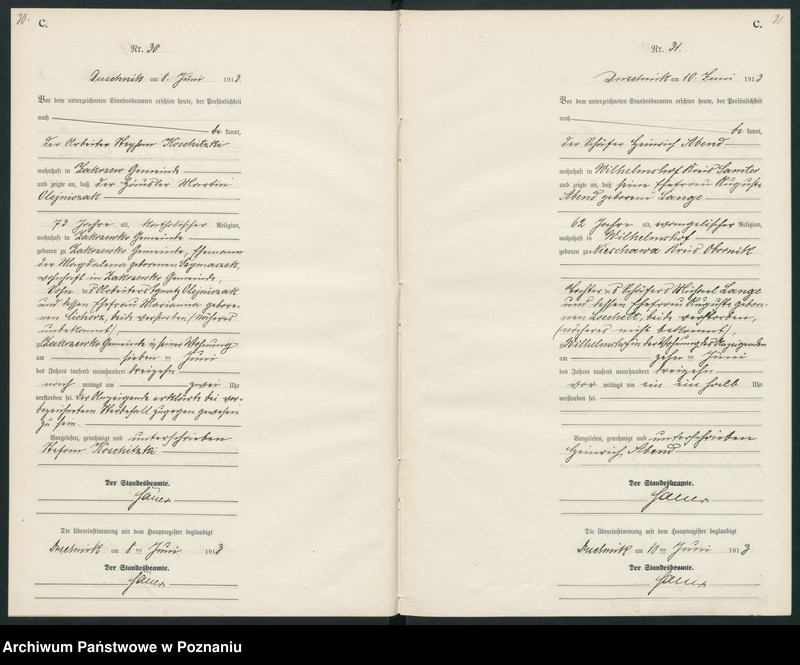 30.
C.
Nr. 30
Duschnik am 8. Juni 1913.
Vor dem unterzeichneten Standesbeamten erschien heute, der Persönlichkeit
nach
be kannt,
der Arbeiter Stephan Koschitzki
wohnhaft in Zakrzew Gemeinde
und zeigte an, daß der Häusler Martin
Olejniczak
73 Jahre alt, katholischer Religion,
wohnhaft in Zakrzewko Gemeinde
geboren zu Zakrzewko Gemeinde, Ehemann
der Magdalena geborenen
wohnhaft in Zakrzewko Gemeinde,
Sohn des Arbeiters Ignatz Olejniczak
und dessen Ehefrau Marianna gebore-
nen Cichorz, beide verstorben (näheres
unbekannt)
zu Zakrzewko Gemeinde in seiner Wohnung
am sieben ten Juni
des Jahres tausend neunhundert dreizehn
nach mittags um zwei Uhr
verstorben sei. Der Anzeigende erklärte bei vor-
bezeichnetem Sterbefall zugegen gewesen
zu sein.
Vorgelesen, genehmigt und unterschrieben
Stefan Koschitzki
Der Standesbeamte.
Die Übereinstimmung mit dem Hauptregister beglaubigt
Duschnik am 8 ten Juni 1913
Der Standesbeamte.
31
C.
Nr. 31.
Duschnik am 10. Juni 1913
Vor dem unterzeichneten Standesbeamten erschien heute, der Persönlichkeit
nach
be kannt,
der Schäfer Heinrich Abend
wohnhaft in Wilhelmshof Kreis Samter
und zeigte an, daß seine Ehefrau Auguste
Abend geborene Lange
62 Jahre alt, evangelischer Religion,
wohnhaft in Wilhelmshof
geboren zu Nieschawa Kreis Obornik
Tochter des Schäfers Michael Lange
und dessen Ehefrau Auguste gebor-
nen beide verstorben,
(näheres nicht bekannt),
zu Wilhelmshof in der Wohnung des Anzeigenden
am zehn ten Juni
des Jahres tausend neunhundert dreizehn
vor mittags um ein ein halb Uhr
verstorben sei.
Vorgelesen, genehmigt und unterschrieben
Heinrich Abend
Der Standesbeamte.
Die Übereinstimmung mit dem Hauptregister beglaubigt
Duschnik am 10 ten Juni 1913
Der Standesbeamte.
Archiwum Państwowe w Poznaniu